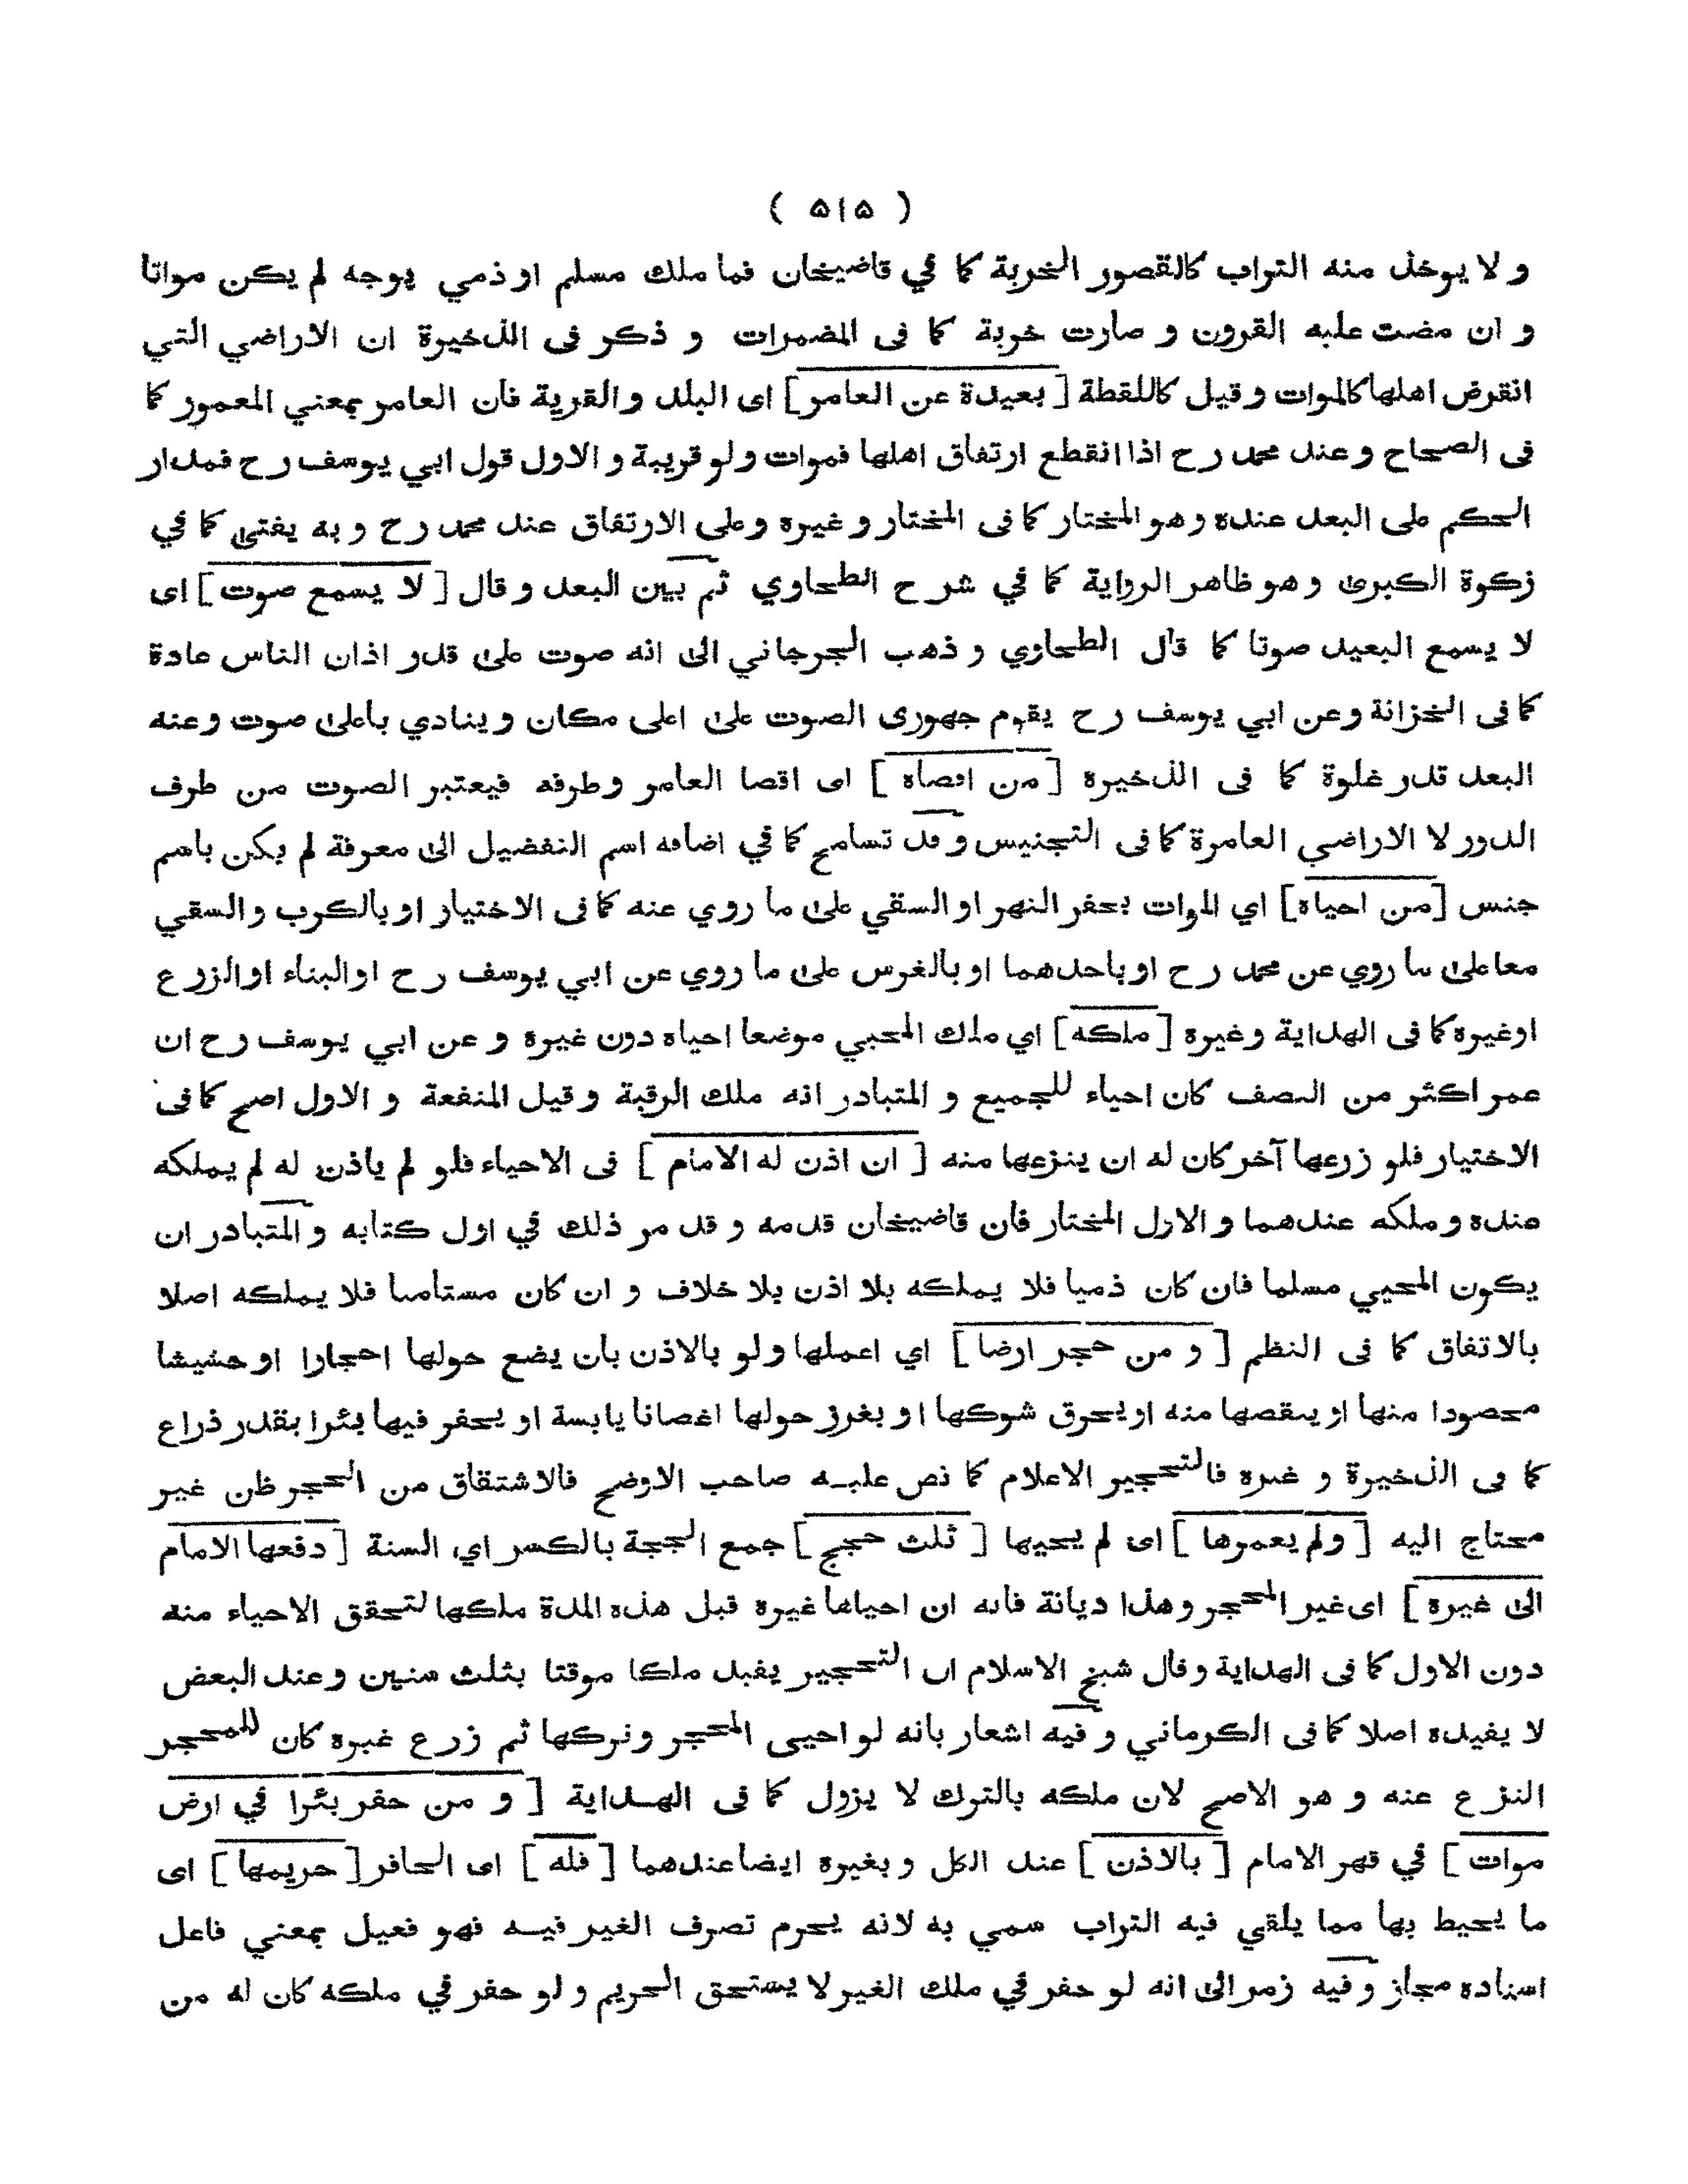 ( ۵۱۵ )
و لا يوخذ منه التراب كالقصور الخربة كما في قاضيخان فما ملك مسلم او ذمي بوجه لم يكن مواتا
و ان مضت عليه القرون و صارت خربة كما فى المضمرات و ذكر فى الذخيرة ان الاراضي التي
انقرض اهلها كالموات و قيل كاللقطة [ بعيدة عن العامر ] اى البلد و القرية فان العامر بمعني المعمور كما
فى الصحاح و عند محمد رح اذا انقطع ارتفاق اهلها فموات و لو قريبة و الاول قول ابي يوسف رح فمدار
الحكم على البعد عنده و هو المختار كما فى المختار و غيره و على الارتفاق عند محمد رح و به يفتى كما في
زكوة الكبرى و هو ظاهر الرواية كما في شرح الطحاوي ثم بين البعد و قال [ لا يسمع صوت ] اى
لا يسمع البعيد صوتا كما قال الطحاوي و ذهب الجرجاني الى انه صوت على قدر اذان الناس عادة
كما فى الخزانة و عن ابي يوسف رح يقوم جهورى الصوت على اعلى مكان و ينادي باعلى صوت و عنه
البعد قدر غلوة كما فى الذخيرة [ من اقصاه ] اى اقصا العامر و طرفه فيعتبر الصوت من طرف
الدور لا الاراضي العامرة كما فى التجنيس و قد تسامح كما في اضافه اسم التفضيل الى معرفة لم يكن باسم
جنس [ من احياه ] اي الموات بحفر النهر او السقي على ما روي عنه كما فى الاختيار او بالكرب و السقي
معا على ما روي عن محمد رح او باحدهما او بالغرس على ما روي عن ابي يوسف رح او البناء او الزرع
او غيره كما فى الهداية و غيره [ ملكه ] اي ملك المحيي موضعا احياه دون غيره و عن ابي يوسف رح ان
عمر اكثر من النصف كان احياء للجميع و المتبادر انه ملك الرقبة و قيل المنفعة و الاول اصح كما فى
الاختيار فلو زرعها آخر كان له ان ينزعها منه [ ان اذن له الامام ] فى الاحياء فلو لم ياذن له لم يملكه
عنده و ملكه عندهما و الاول المختار فان قاضيخان قدمه و قد مر ذلك في اول كتابه و المتبادر ان
يكون المحيي مسلما فان كان ذميا فلا يملكه بلا اذن بلا خلاف و ان كان مستأمنا فلا يملكه اصلا
بالاتفاق كما فى النظم [ و من حجر ارضا ] اي اعملها و لو بالاذن بان يضع حولها احجارا او حشيشا
محصودا منها او ينقصها منه او يحرق شوكها او يغرز حولها اغصانا يابسة او يحفر فيها بئرا بقدر ذراع
كما فى الذخيرة و غيره فالتحجير الاعلام كما نص عليه صاحب الاوضح فالاشتقاق من الحجر ظن غير
محتاج اليه [ ولم يعمروها ] اى لم يحيها [ ثلث حجج ] جمع الحجة بالكسر اي السنة [ دفعها الامام
الى غيره ] اى غير المحجر و هذا ديانة فانه ان احياها غيره قبل هذه المدة ملكها لتحقق الاحياء منه
دون الاول كما فى الهداية و قال شيخ الاسلام ان التحجير يفيد ملكا موقتا بثلث سنين و عند البعض
لا يفيده اصلا كما فى الكرماني و فيه اشعار بانه لو احيى المحجر و تركها ثم زرع غيره كان للمحجر
النزع عنه و هو الاصح لان ملكه بالترك لا يزول كما فى الهداية [ و من حفر بئرا في ارض
موات ] في قهر الامام [ بالاذن ] عند الكل و بغيره ايضا عندهما [ فله ] اى الحافر [ حريمها ] اى
ما يحيط بها مما يلقي فيه التراب سمي به لانه يحرم تصرف الغير فيه فهو فعيل بمعني فاعل
اسناده مجاز و فيه رمز الى انه لو حفر في ملك الغير لا يستحق الحريم و لو حفر في ملكه كان له من